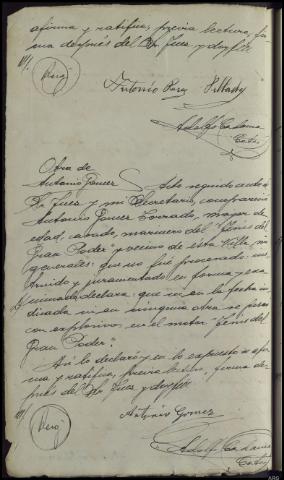 afirma y ratifica, previa lectura, fir-
ma después del Sr. Juez y doy fé.
Antonio
Adolfo Cadarso
Otra de
Antonio Gomez
Acto seguido ante el
Sr. Juez y mi Secretario, comparecio
Antonio Gomez mayor de
edad, casado, marinero del "Jesus del
Gran Poder" y vecino de esta Villa
generales: que no fué procesado: ins-
truido y juramentado en forma y exa-
minado, declara: que ni en la fecha in-
dicada ni en ninguna otra se pesca
con explosivos en el motor "Jesus del
Gran Poder".
Asi lo declaró y en lo expuesto se afir-
ma y ratifica, previa lectura, firma des-
pués del Sr. Juez, y doy fé.
Antonio Gomez
Adolfo Cadarso